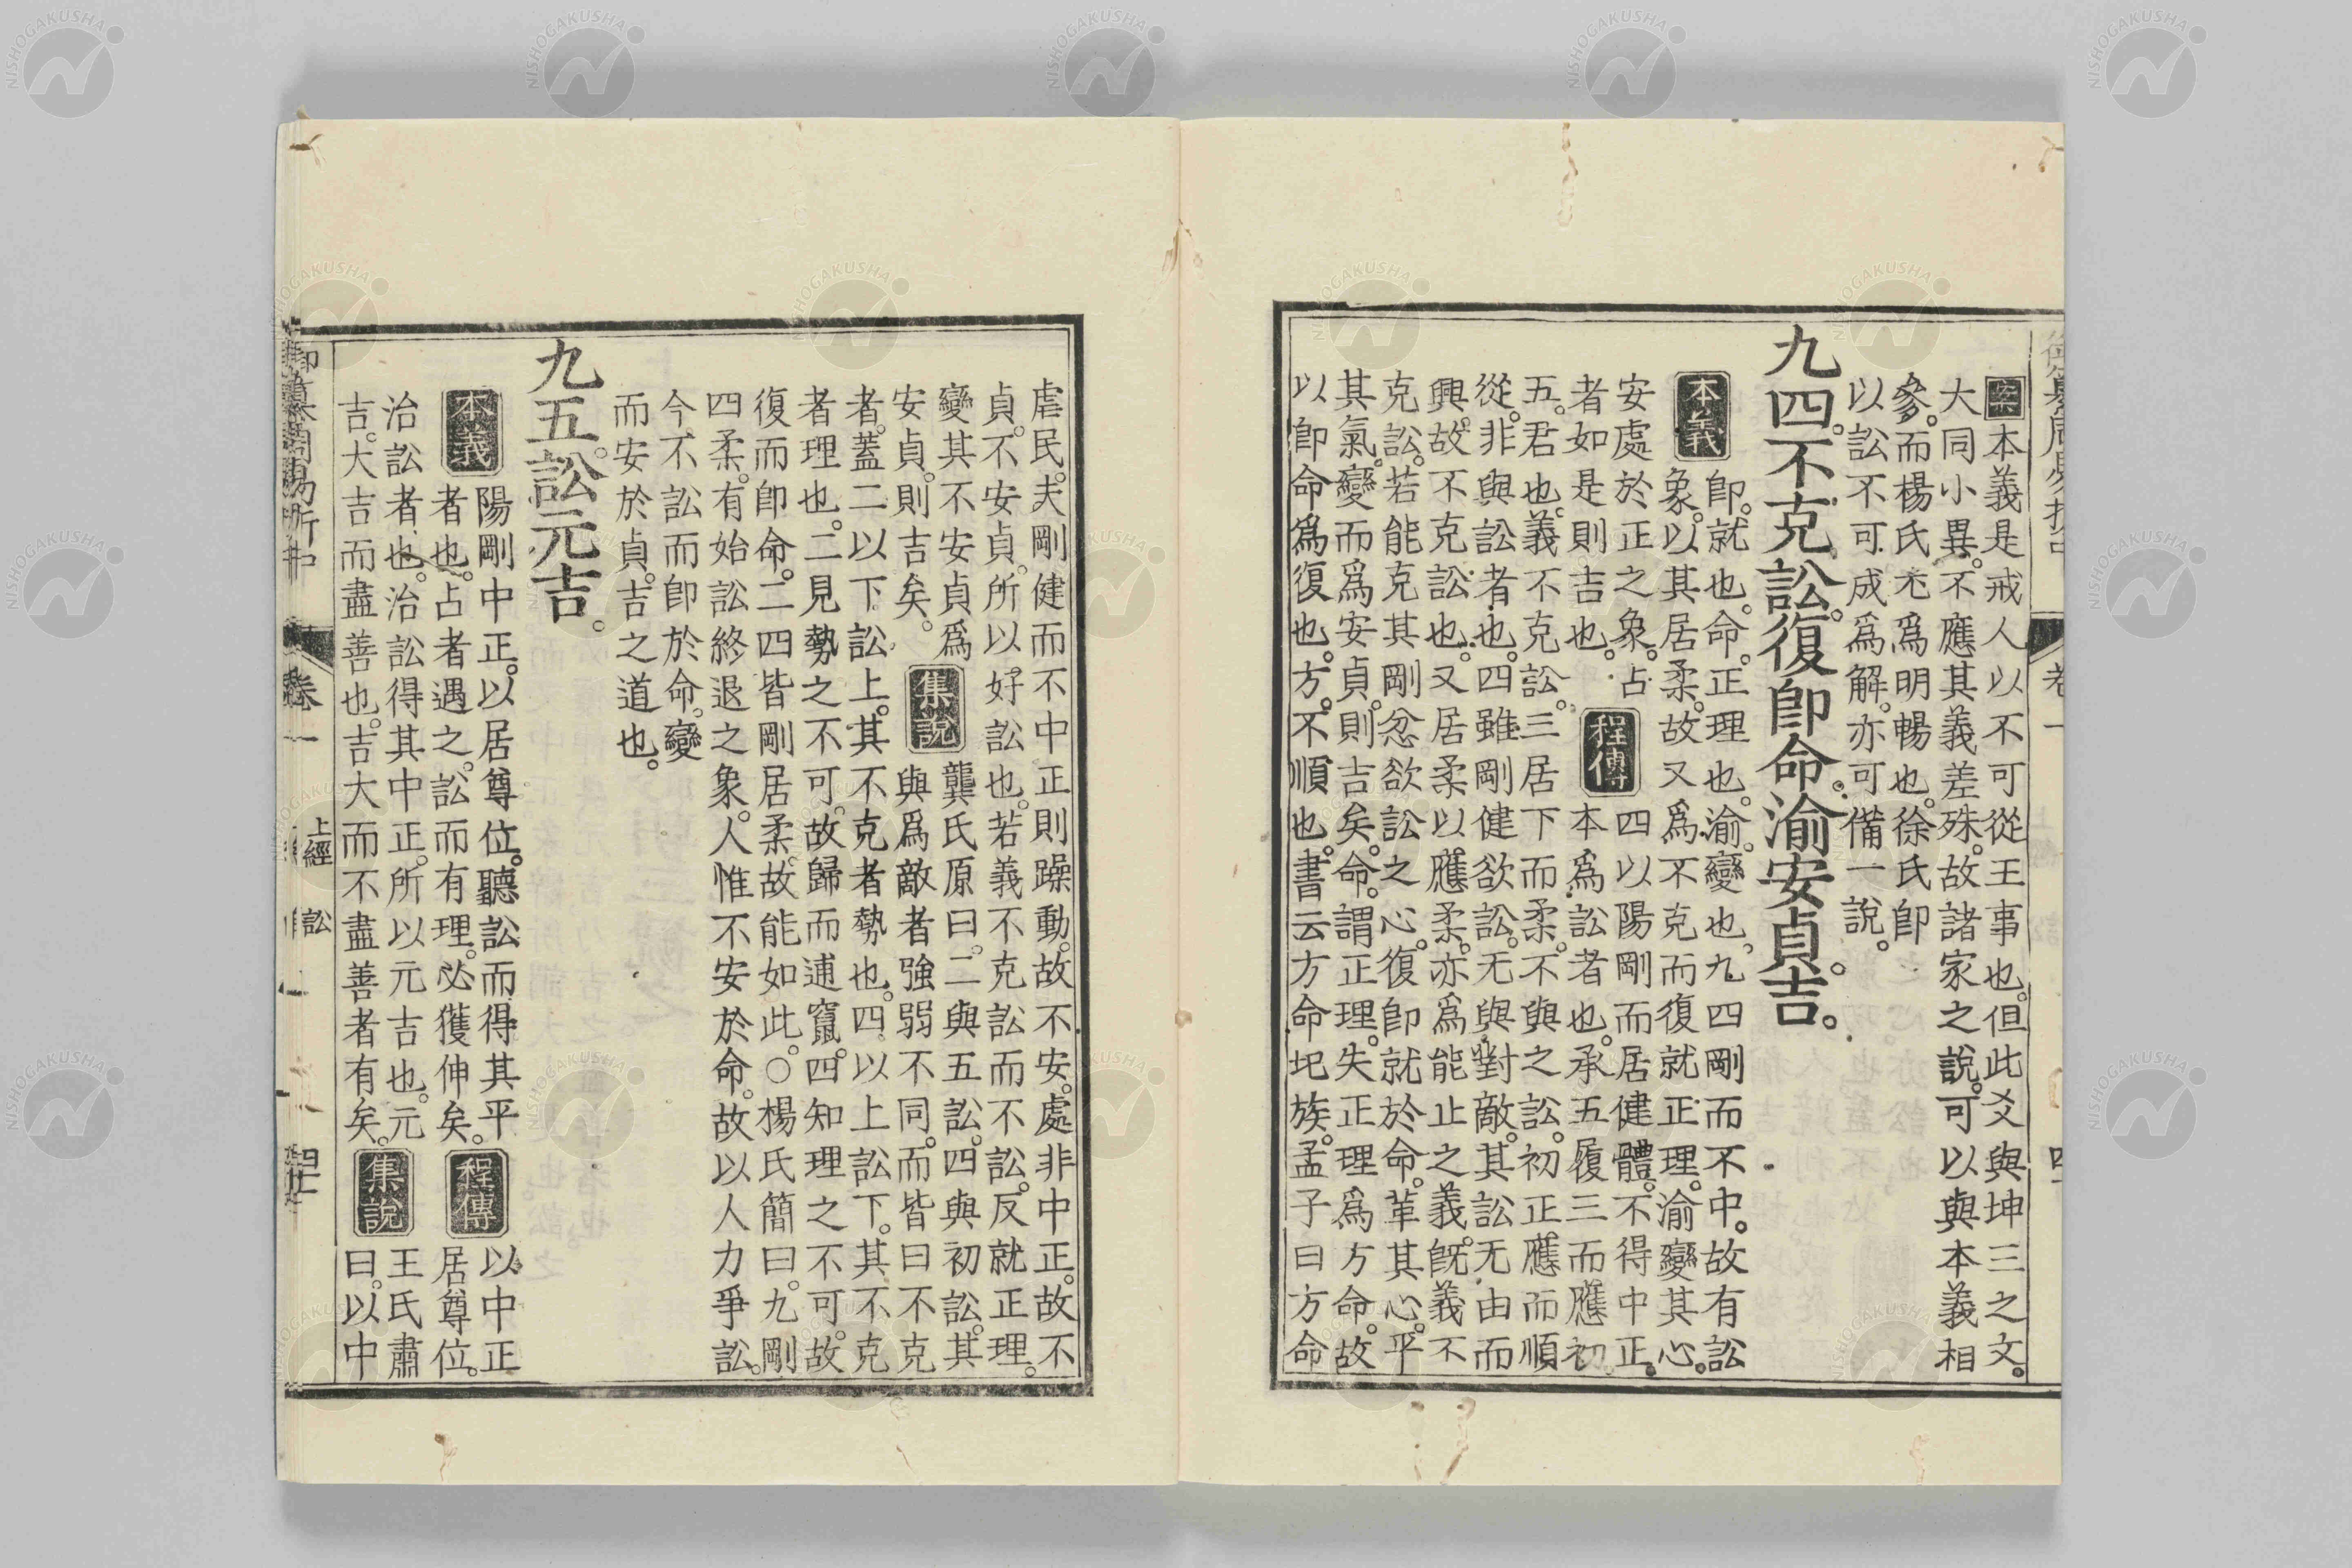 案本義是戒人以不可從王事也。但此爻與坤三之文。
大同小異。不應其義差殊。故諸家之說。可以與本義相
參。而楊氏尤爲明暢也。徐氏卽
以訟不可成爲解。亦可備一說。
九四。不克訟。復卽命。渝安貞。吉。
本義
卽。就也。命。正理也。渝。變也。九四剛而不中。故有訟
象。以其居柔。故又爲不克而復就正理。渝變其心。
安處於正之象。占
者如是則吉也。
程傳
四以陽剛而居健體。不得中正。
本爲訟者也。承五履三而應初。
五。君也。義不克訟。三居下而柔。不與之訟。初正應而順
從。非與訟者也。四雖剛健欲訟。无與對敵。其訟无由而
興。故不克訟也。又居柔以應柔。亦爲能止之義。旣義不
克訟。若能克其剛忿欲訟之心。復卽就於命。革其心。平
其氣。變而爲安貞。則吉矣。命。謂正理。失正理爲方命。故
以卽命爲復也。方。不順也。書云方命圮族。孟子曰方命
虐民。夫剛健而不中正則躁動。故不安。處非中正。故不
貞。不安貞。所以好訟也。若義不克訟而不訟。反就正理。
變其不安貞爲
安貞。則吉矣。
集說
龔氏原曰。二與五訟。四與初訟。其
與爲敵者強弱不同。而皆曰不克
者。蓋二以下訟上。其不克者勢也。四以上訟下。其不克
者理也。二見勢之不可。故歸而逋竄。四知理之不可。故
復而卽命。二四皆剛居柔。故能如此。○楊氏簡曰。九剛
四柔。有始訟終退之象。人惟不安於命。故以人力爭訟。
今不訟而卽於命。變
而安於貞。吉之道也。
九五。訟元吉。
本義
陽剛中正。以居尊位。聽訟而得其平
者也。占者遇之。訟而有理。必獲伸矣。
程傳
以中正
居尊位。
治訟者也。治訟得其中正。所以元吉也。元
吉。大吉而盡善也。吉大而不盡善者有矣。
集說
王氏肅
曰。以中
卷一
上經
訟
NISHOGAKUSHA